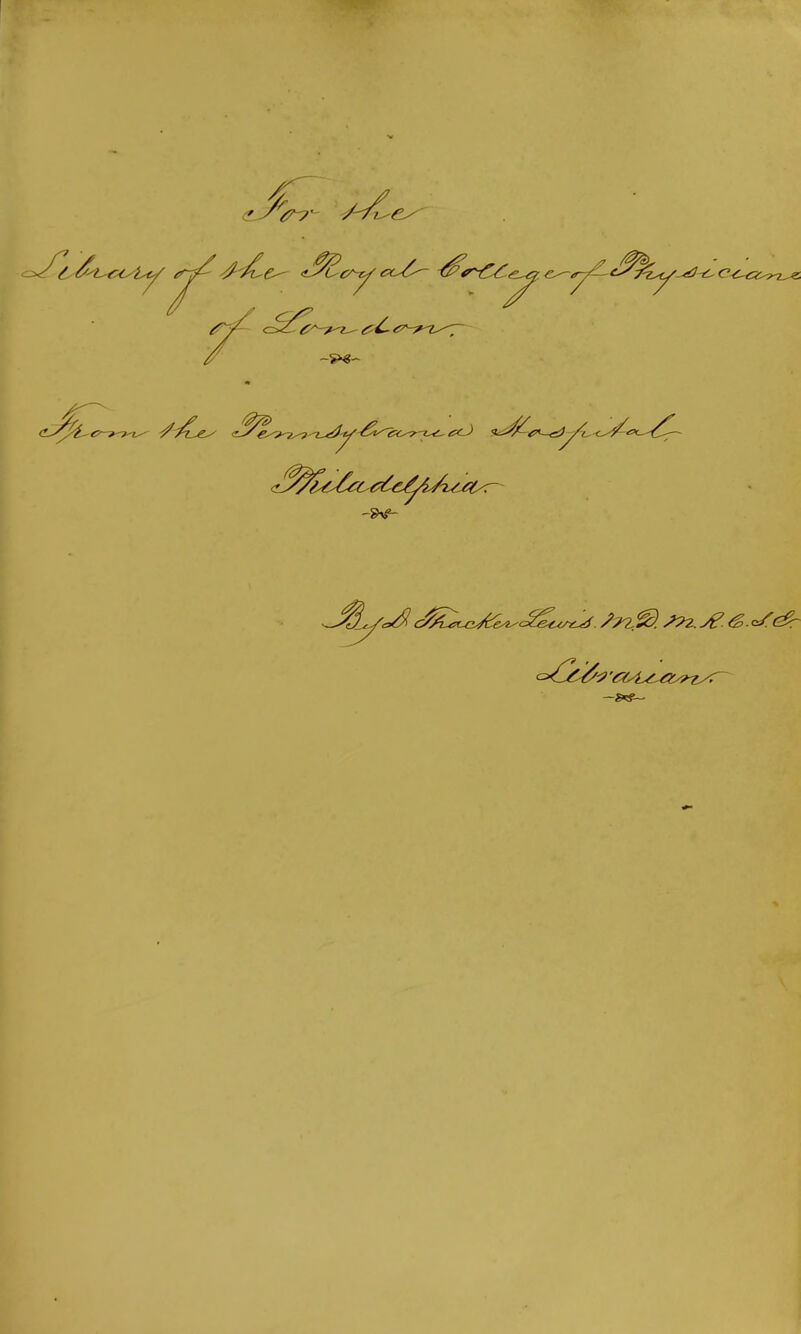 For the
Library of the Royal College of Physicians
of London.
From the Pennsylvania Hospital
Philadelphia.
By
Librarian.